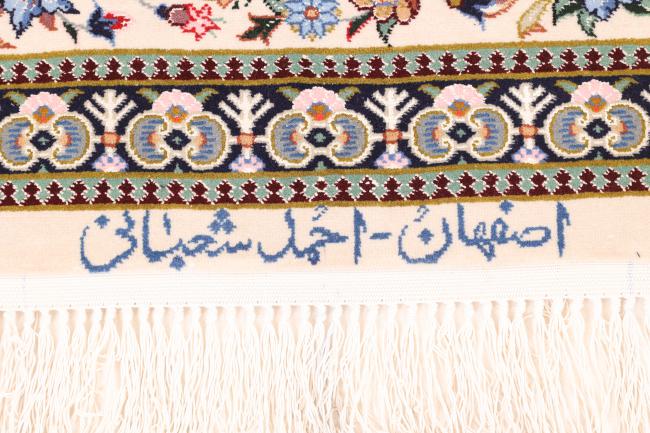 اصفهان - احمد شعبانی